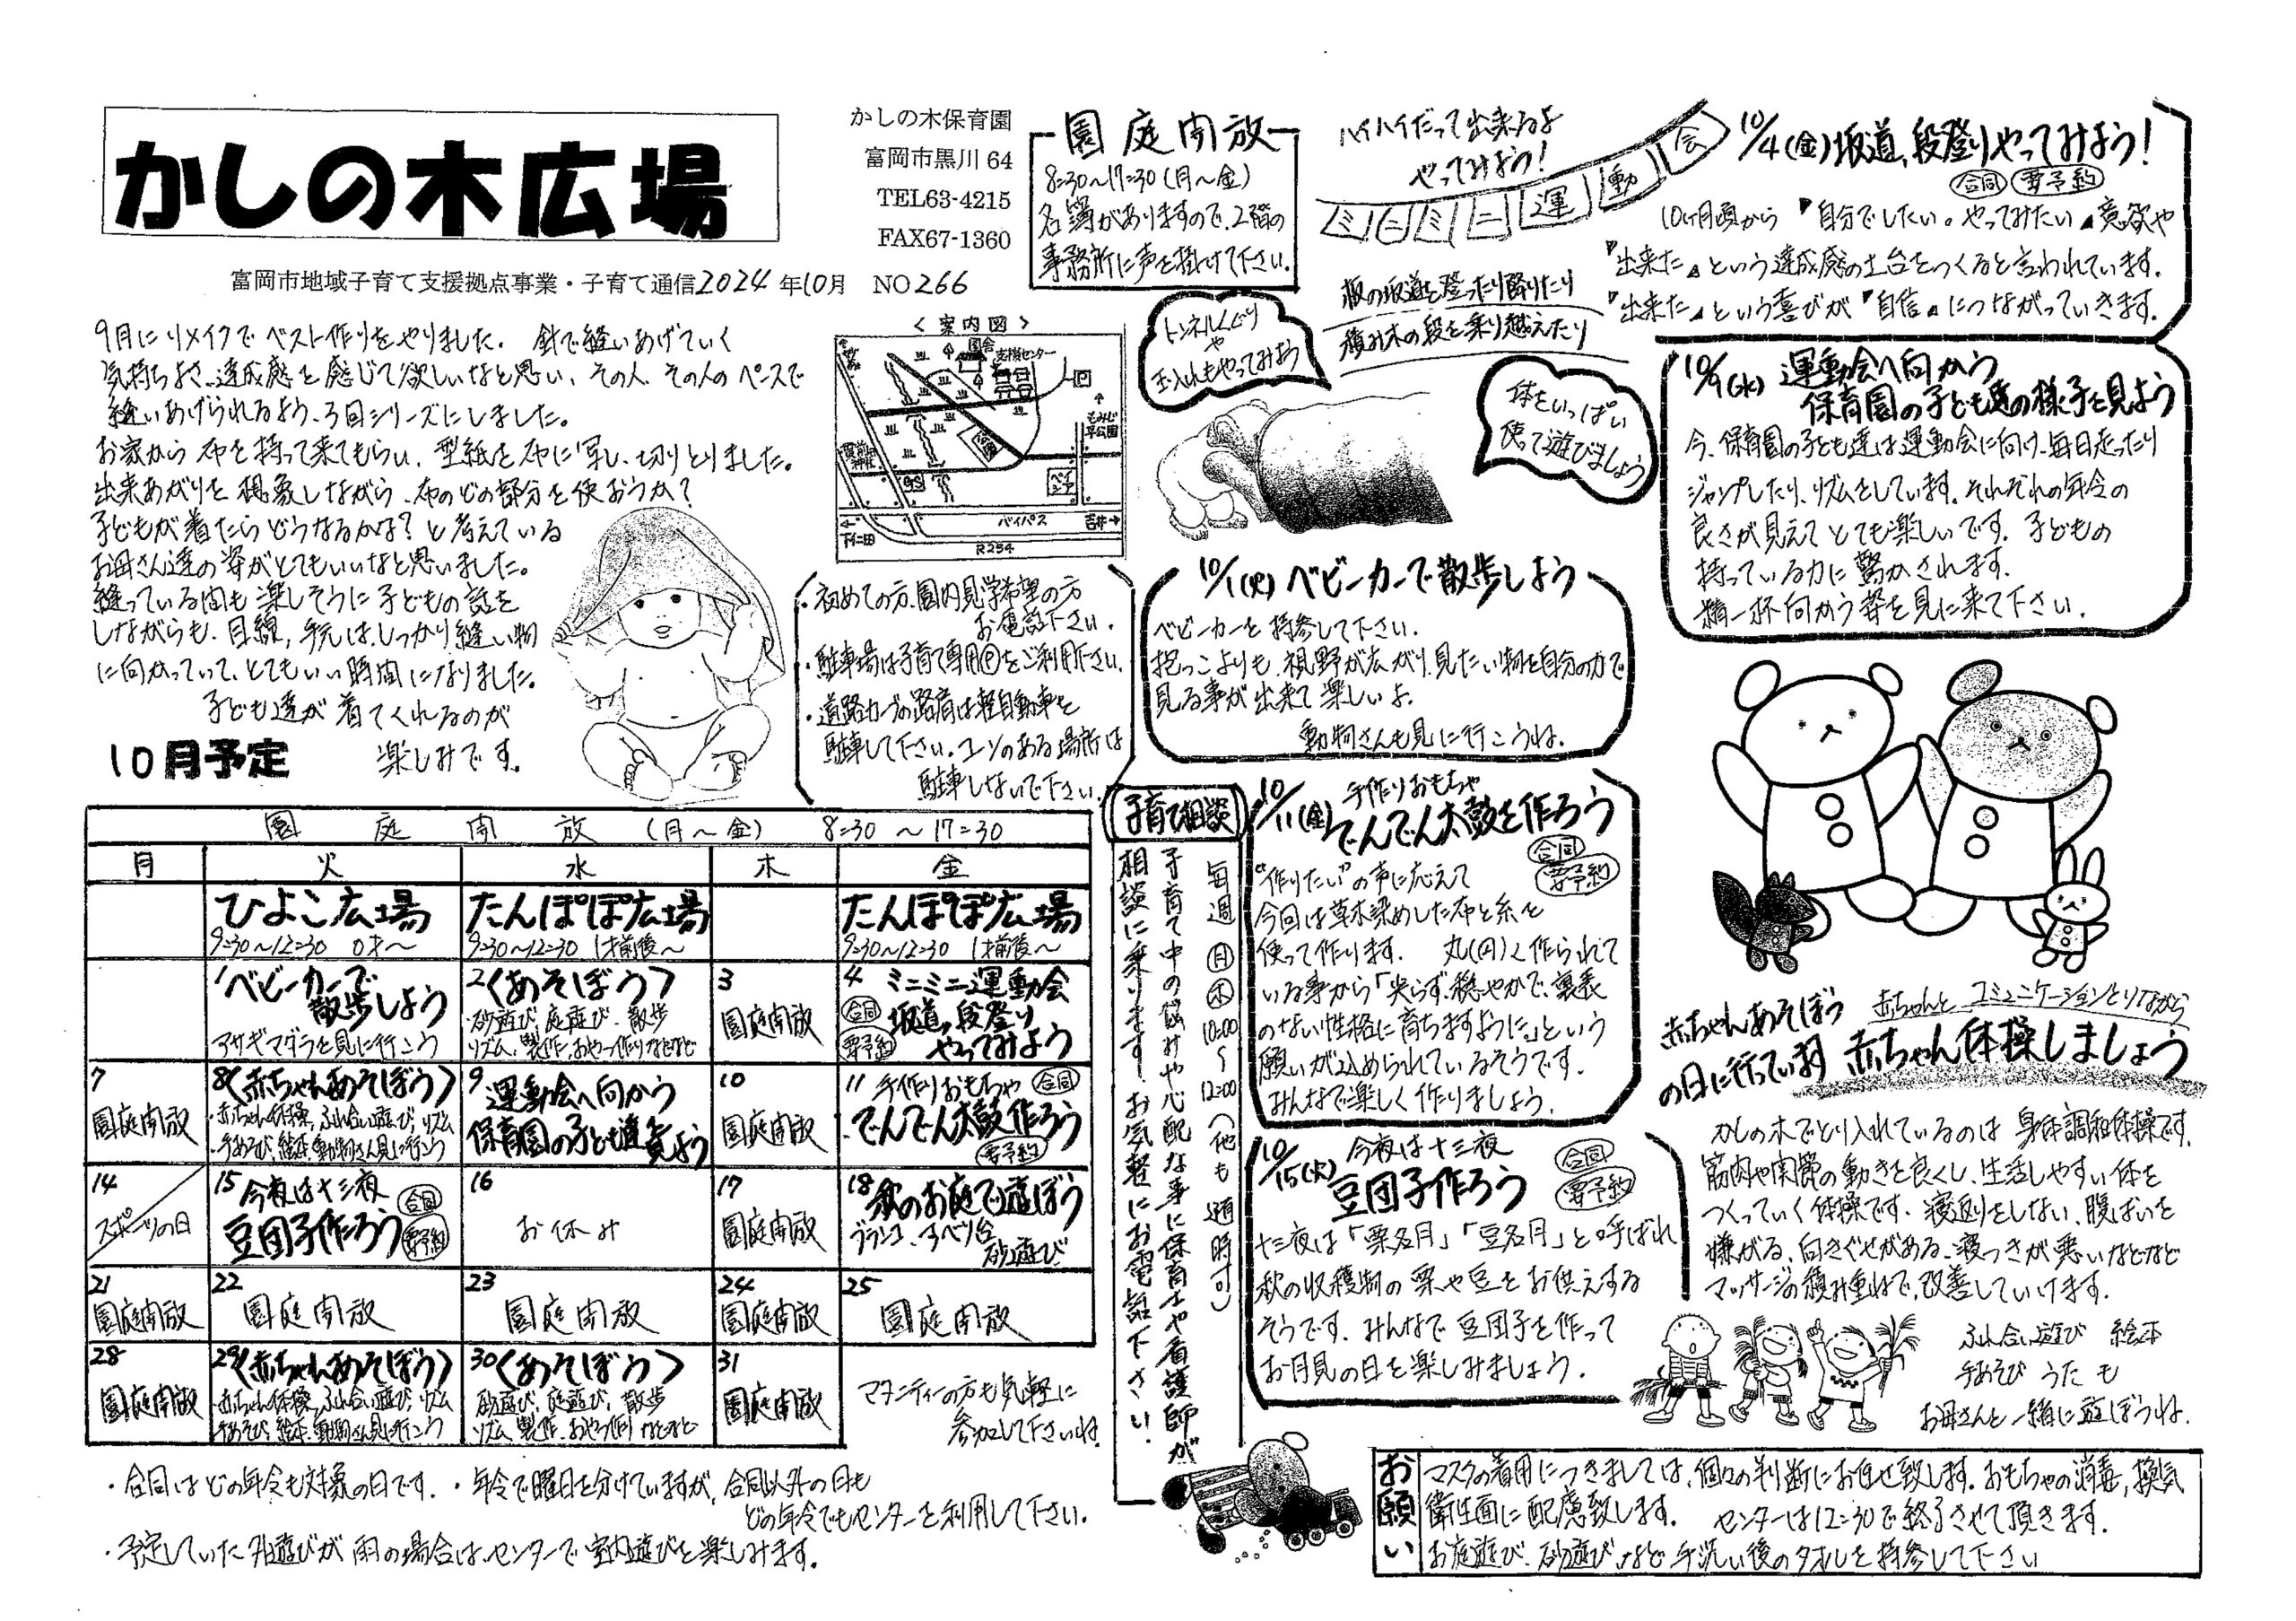 かしの木広場
かしの木保育園
富岡市黒川 64
TEL63-4215
FAX67-1360
富岡市地域子育て支援拠点事業・子育て通信2024年10月 NO266
9月にリメイクでベスト作りをやりました。針で縫いあげていく
気持ちよさ、達成感を感じて欲しいなと思い、その人、その人のペースで
縫いあげられるよう、3回シリーズにしました。
お家から布を持って来てもらい、型紙を布に写し、切りとりました。
出来あがりを想像しながら、布のどの部分を使おうか?
子どもが着たらどうなるかな?と考えている
お母さん達の姿がとてもいいなと思いました。
縫っている間も楽しそうに子どもの話を
しながらも、目線、手元は、しっかり縫い物
に向かっていて、とてもいい時間になりました。
子ども達が着てくれるのが
楽しみです。
園庭開放
8:30~17:30(月~金)
名簿がありますので、2階の
事務所に声を掛けて下さい。
<案内図>
園舎
支援センター
もみじ平公園
GS
ベイシア
バイパス
吉井→
下仁田
R254
・初めての方、園内見学希望の方
お電話下さい。
・駐車場は子育て専用Ⓟをご利用下さい。
・道路カーブの路肩は軽自動車を
駐車して下さい。コーンのある場所は
駐車しないで下さい。
ハイハイだって出来るよ
やってみよう!
ミニミニ運動会
板の坂道を登ったり降りたり
積み木の段を乗り越えたり
トンネルくぐり
や
玉入れもやってみよう
体をいっぱい
使って遊びましょう
10/4(金)坂道、段登りやってみよう!
合同 要予約
10ヶ月頃から『自分でしたい。やってみたい』意欲や
『出来た』という達成感の土台をつくると言われています。
『出来た』という喜びが『自信』につながっていきます。
10/9(水) 運動会へ向かう
保育園の子ども達の様子を見よう
今、保育園の子ども達は運動会に向け、毎日走ったり
ジャンプしたり、リズムをしています。それぞれの年令の
良さが見えてとても楽しいです。子どもの
持っている力に驚かされます。
精一杯向かう姿を見に来て下さい。
10/1(火) ベビーカーで散歩しよう
ベビーカーを持参して下さい。
抱っこよりも、視野が広がり、見たい物を自分の力で
見る事が出来て楽しいよ。
動物さんも見に行こうね。
10月予定
園庭開放(月~金) 8:30~17:30
月 火 水 木 金
ひよこ広場
9:30~12:30 0才~
たんぽぽ広場
9:30~12:30 1才前後~
たんぽぽ広場
9:30~12:30 1才前後~
1 ベビーカーで
散歩しよう
アサギマダラを見に行こう
2 <あそぼう>
砂遊び、庭遊び、散歩
リズム、製作、おやつ作りなどなど
3
園庭開放
4 ミニミニ運動会
合同 要予約
坂道、段登り
やってみよう
7
園庭開放
8 <赤ちゃんあそぼう>
・赤ちゃん体操、ふれ合い遊び、リズム
・手あそび、絵本、動物さん見に行こう
9 運動会へ向かう
保育園の子ども達見よう
10
園庭開放
11 手作りおもちゃ 合同
でんでん太鼓作ろう
要予約
14
スポーツの日
15 今夜は十三夜 合同
豆団子作ろう 要予約
16
お休み
17
園庭開放
18 秋のお庭で遊ぼう
ブランコ、すべり台
砂遊び
21
園庭開放
22
園庭開放
23
園庭開放
24
園庭開放
25
園庭開放
28
園庭開放
29 <赤ちゃんあそぼう>
赤ちゃん体操、ふれ合い遊び、リズム
手あそび、絵本、動物さん見に行こう
30 <あそぼう>
砂遊び、庭遊び、散歩
リズム、製作、おやつ作りなどなど
31
園庭開放
マタニティーの方も気軽に
参加して下さいね。
・合同はどの年令も対象の日です。・年令で曜日を分けていますが、合同以外の日も
どの年令でもセンターを利用して下さい。
・予定していた外遊びが雨の場合は、センターで室内遊びを楽しみます。
子育て相談
毎週 月 木 10:00~12:00(他も随時可)
子育て中の悩みや心配な事に保育士や看護師が
相談に乗ります。お気軽にお電話下さい。
10/11(金) 手作りおもちゃ
でんでん太鼓を作ろう
合同
要予約
"作りたい"の声に応えて
今回は草木染めした布と糸を
使って作ります。 丸(円)く作られて
いる事から「尖らず、穏やかで、裏表
のない性格に育ちますように」という
願いが込められているそうです。
みんなで楽しく作りましょう。
10/15(火) 今夜は十三夜
豆団子作ろう
合同
要予約
十三夜は「栗名月」「豆名月」と呼ばれ
秋の収穫物の栗や豆をお供えする
そうです。みんなで豆団子を作って
お月見の日を楽しみましょう。
赤ちゃんあそぼう
の日に行っています
赤ちゃんとコミュニケーションとりながら
赤ちゃん体操しましょう
かしの木でとり入れているのは身体調和体操です。
筋肉や関節の動きを良くし、生活しやすい体を
つくっていく体操です。寝返りをしない、腹ばいを
嫌がる、向きぐせがある、寝つきが悪いなどなど
マッサージの積み重ねで、改善していけます。
ふれ合い遊び 絵本
手あそび うた も
お母さんと一緒に遊ぼうね。
お願い
マスクの着用につきましては、個々の判断にお任せ致します。おもちゃの消毒、換気
衛生面に配慮致します。 センターは12:30で終了させて頂きます。
お庭遊び、砂遊びなど手洗い後のタオルを持参して下さい